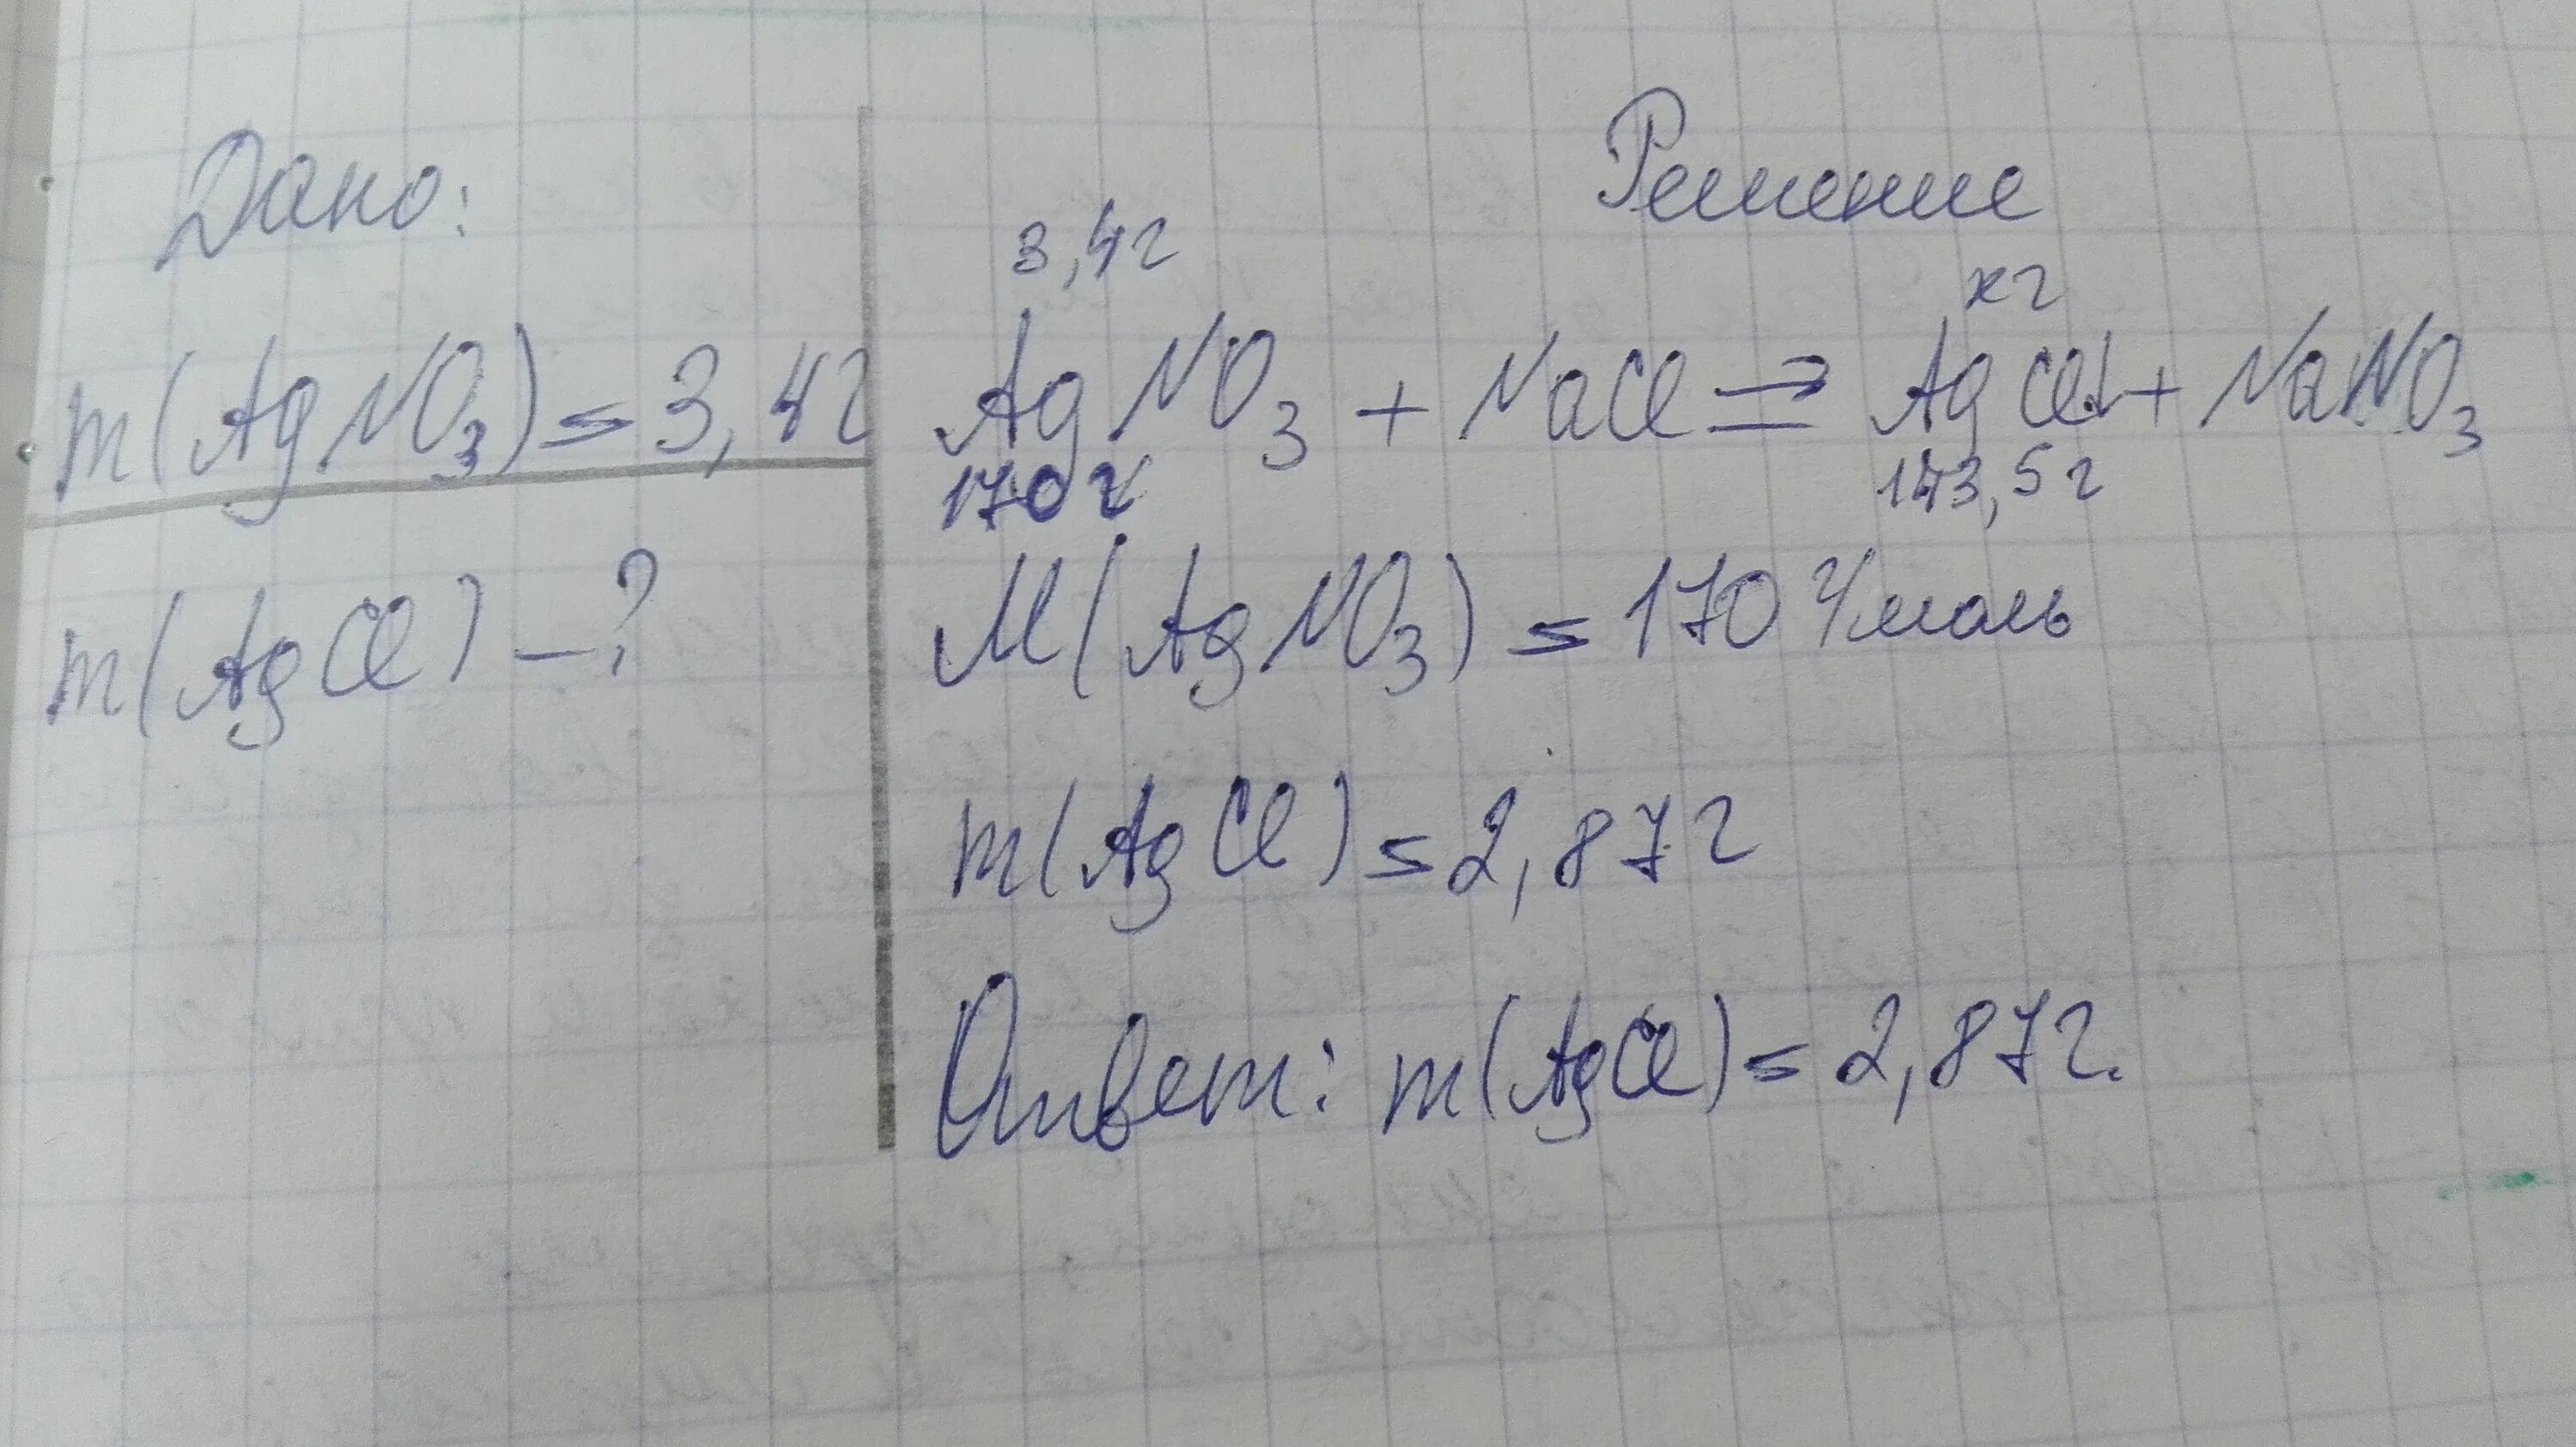 Дано:
m(AgNO3) = 3,4г
m(AgCl) - ?
Решение
3,4г xг
AgNO3 + NaCl ⇒ AgCl↓ + NaNO3
170г 143,5г
M(AgNO3) = 170 г/моль
m(AgCl) = 2,87г
Ответ: m(AgCl) = 2,87г.